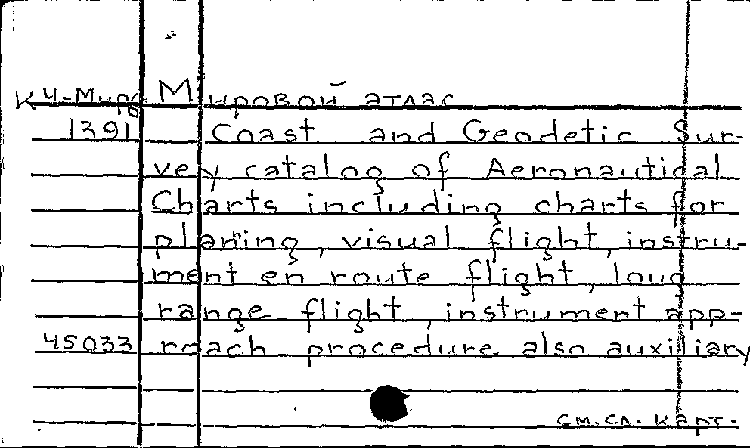 К 4-Мира Мировой атлас
1391 Coast and Geodetic Sur-
vey catalog of Aeronautical
Charts including charts for
planing, visual flight, instru-
ment en route flight, loug
range flight, instrument app-
45033 roach procedure also auxiliary
см. сл. карт.